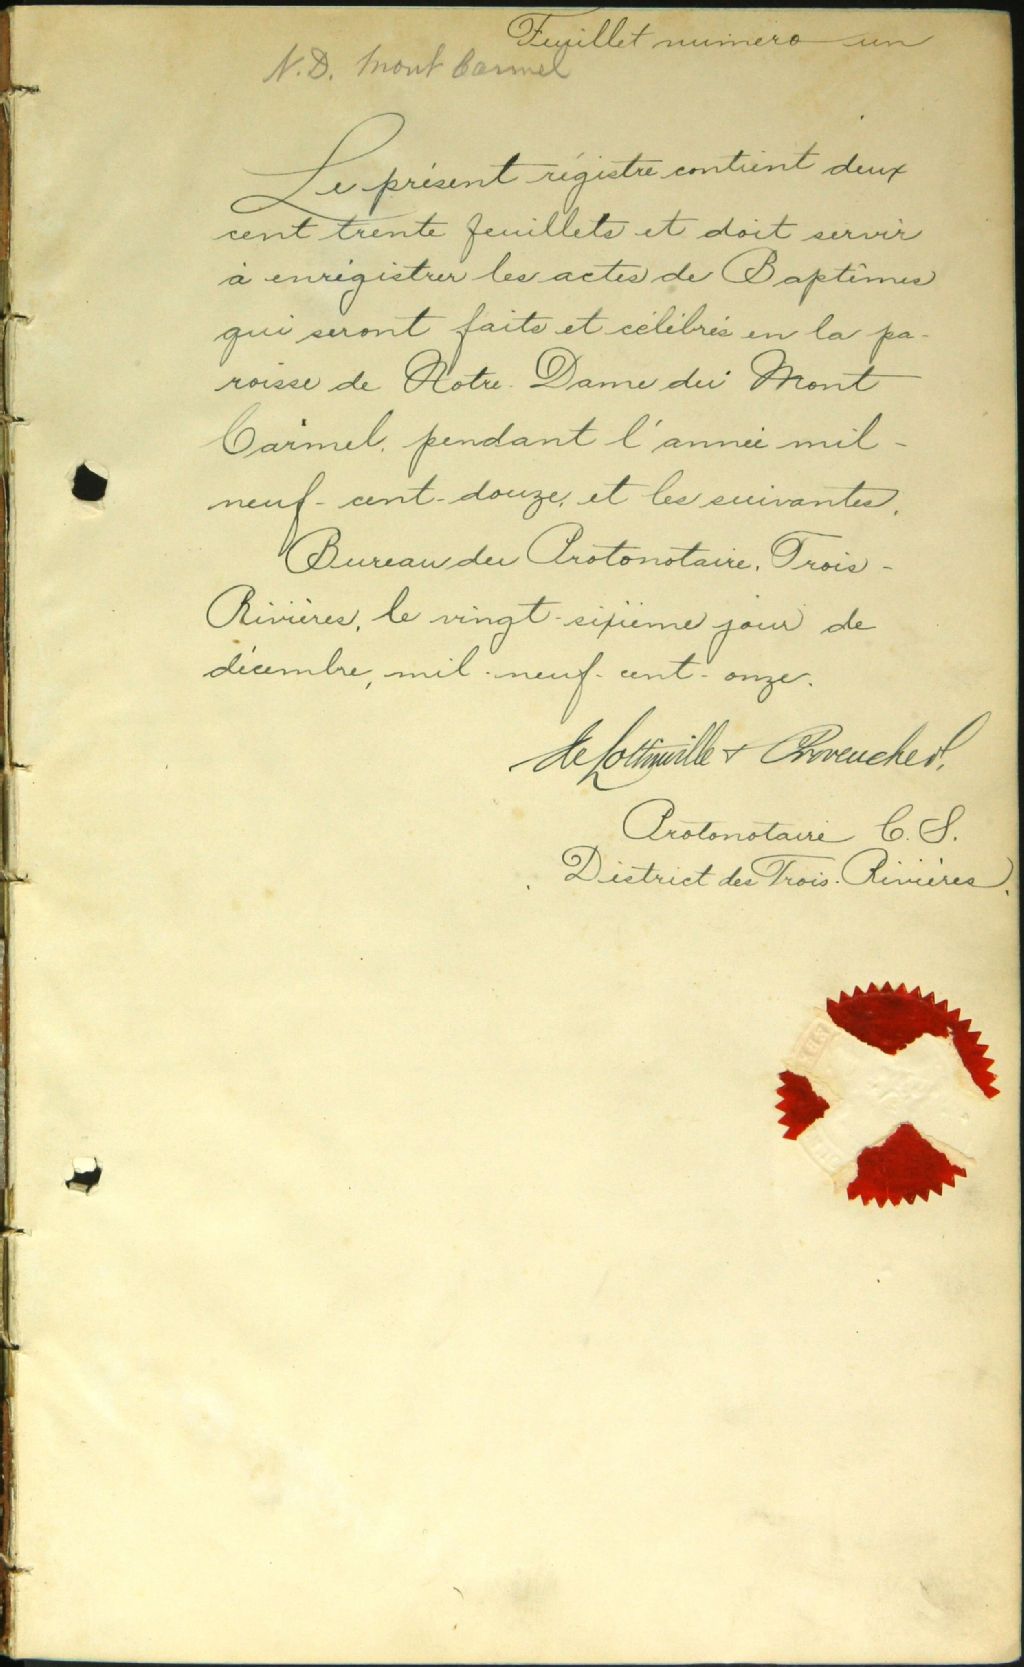 Feuillet numero un
N. D. Mont Carmel
Le présent régistre contient deux
cent trente feuillets et doit servir
à enrégistrer les actes de Baptêmes
qui seront faits et célébrés en la pa-
roisse de Notre-Dame du Mont
Carmel, pendant l'année mil-
neuf-cent-douze, et les suivantes.
Bureau du Protonotaire, Trois-
Rivières, le vingt-sixième jour de
décembre, mil-neuf-cent-onze.
de Lottinville & Provencher,
Protonotaire C. S.
District des Trois-Rivières.